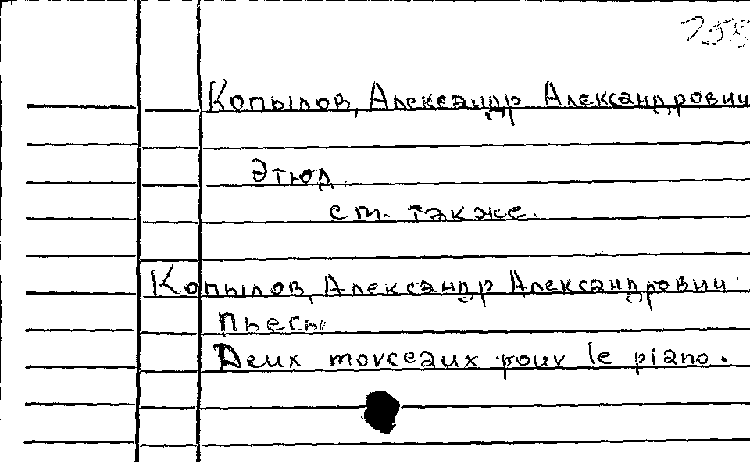 Копылов, Александр Александрович
Этюд.
см. также.
Копылов, Александр Александрович
Пьесы
Deux morceaux pour le piano.